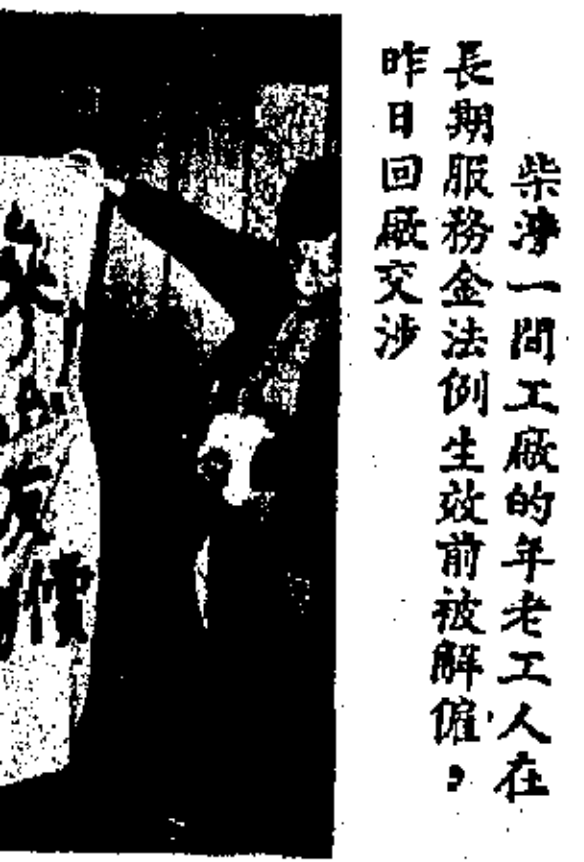 柴灣一間工廠的年老工人在
長期服務金法例生效前被解僱，
昨日回廠交涉